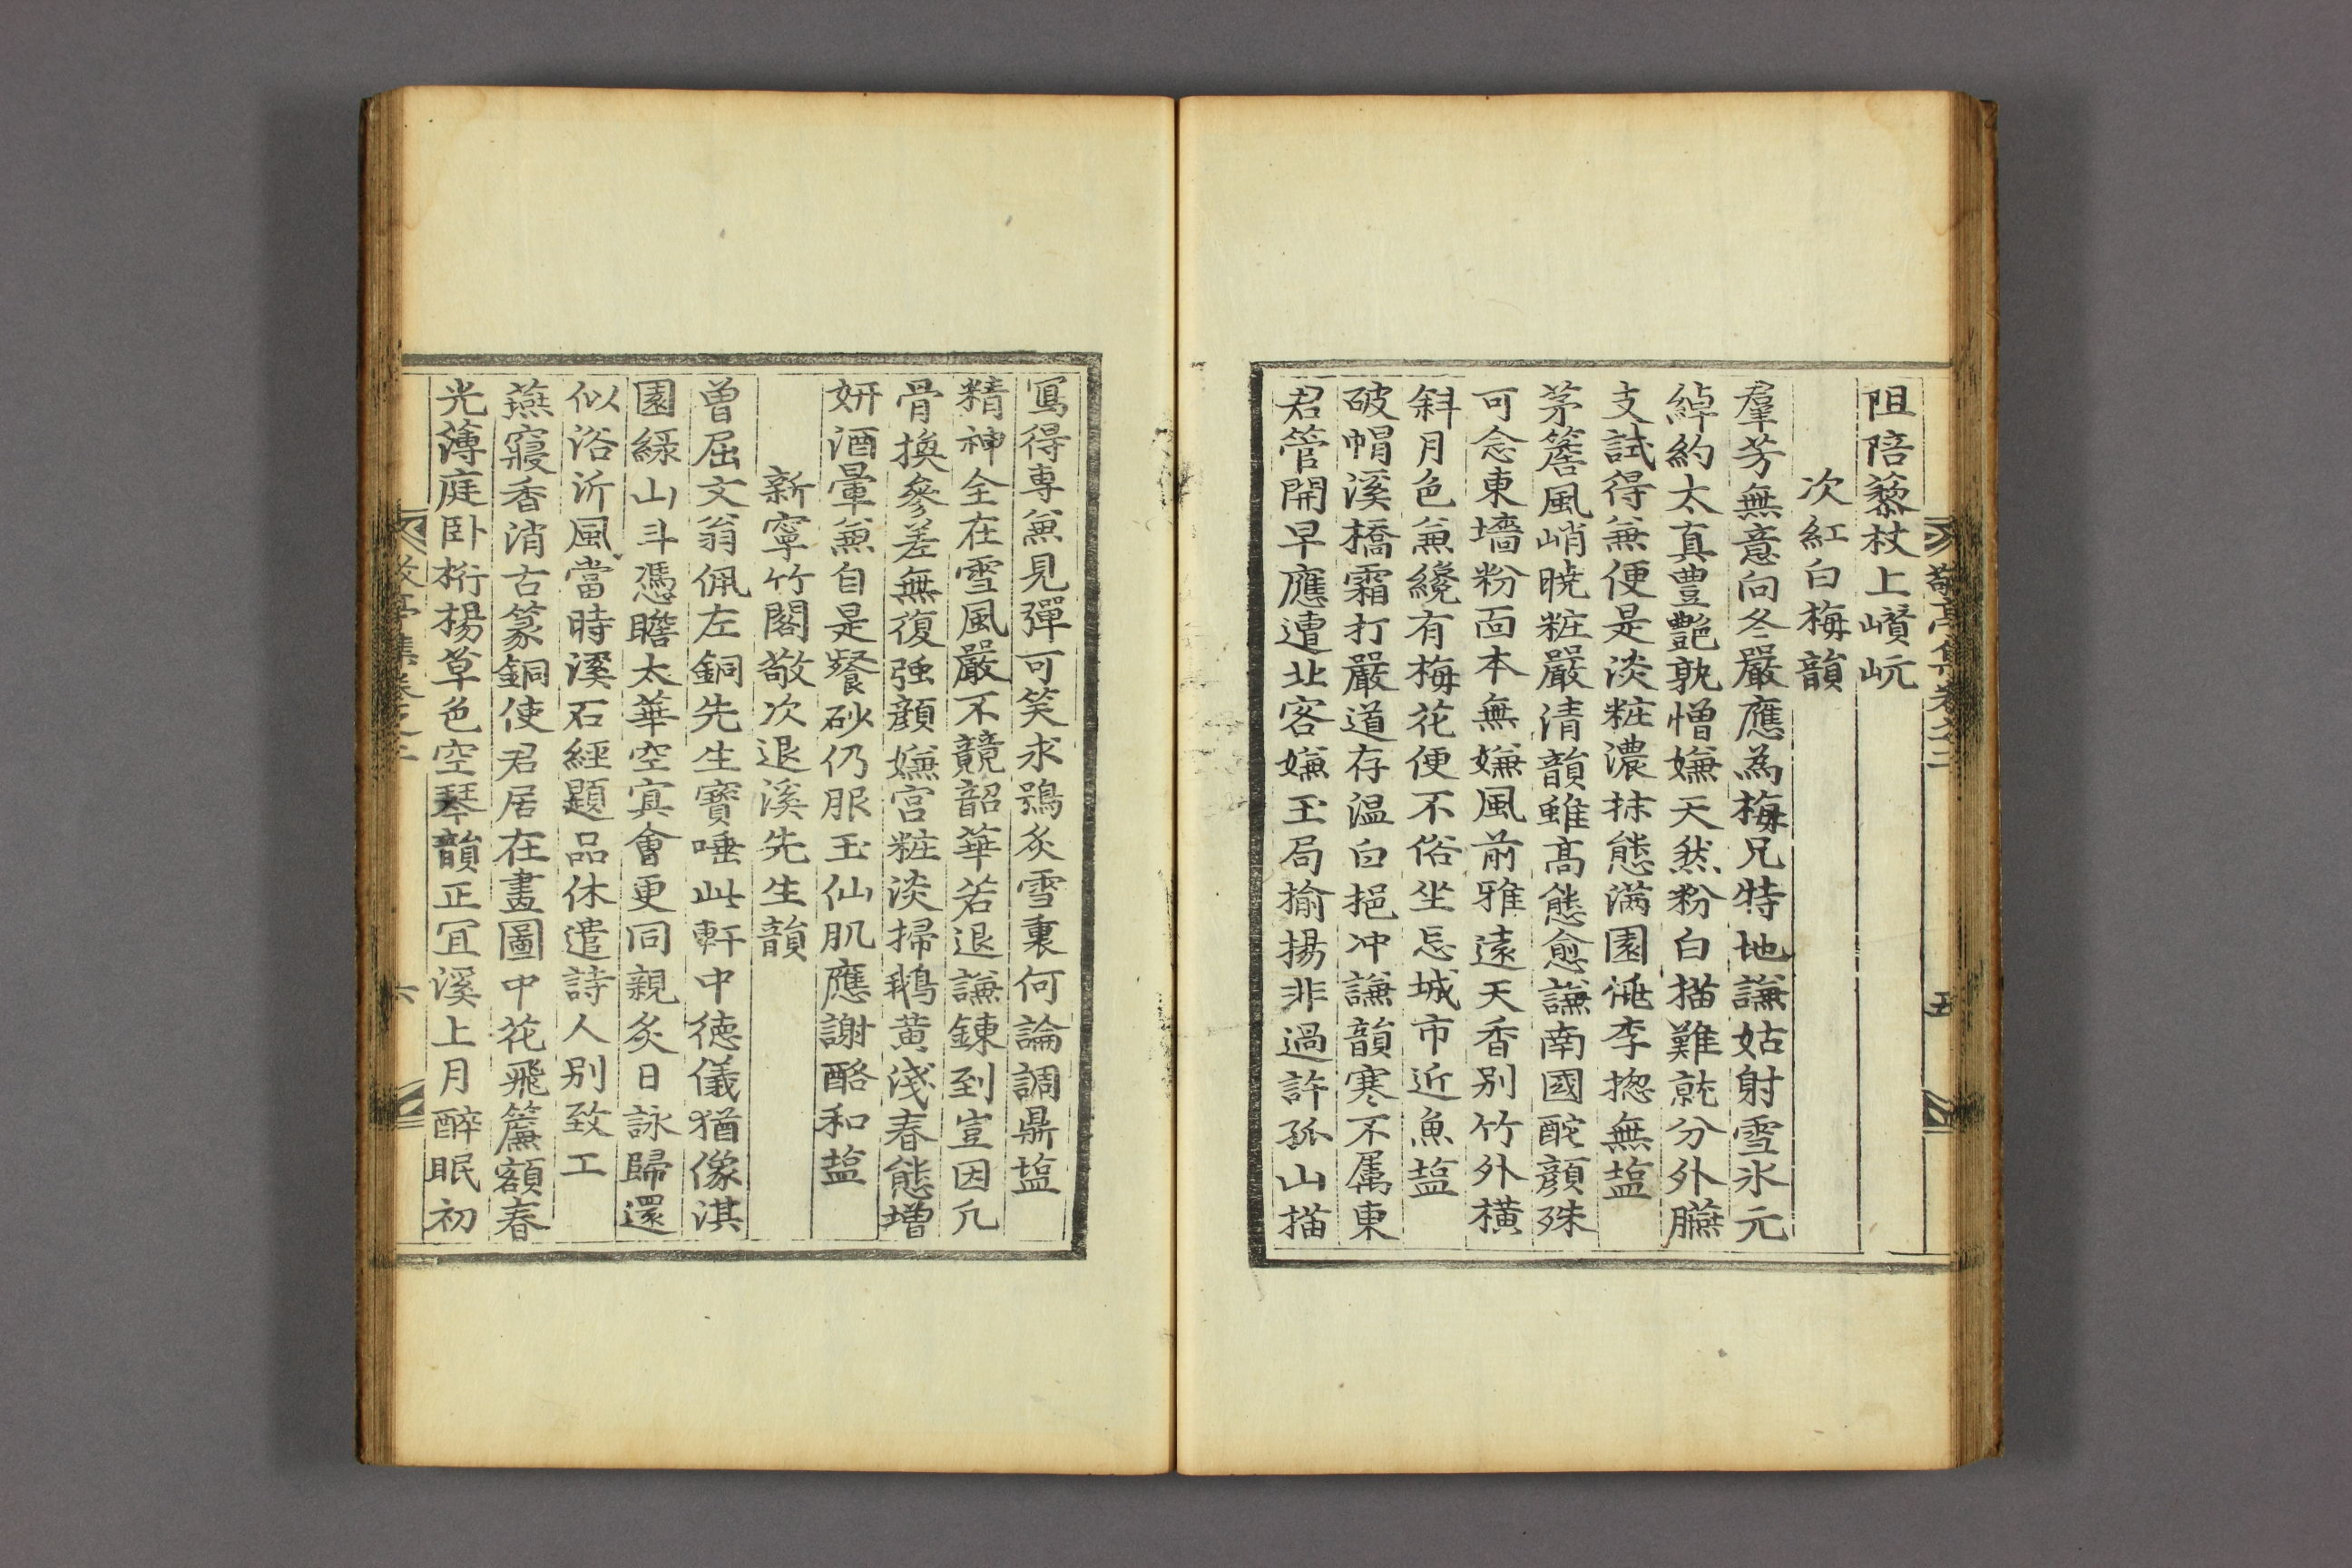 敬亭集卷之二
五
阻陪藜杖上巑岏
次紅白梅韻
羣芳無意向冬嚴應為梅兄特地謙姑射雪氷元
綽約太真豊艶孰憎嫌天然粉白描難就分外臙
支試得兼便是淡粧濃抹態滿園桃李揔無塩
茅簷風峭曉粧嚴清韻雖高態愈謙南國酡顔殊
可念東墻粉面本無嫌風前雅遠天香別竹外橫
斜月色兼纔有梅花便不俗坐忘城市近魚塩
破帽溪橋霜打嚴道存温白挹冲謙韻寒不属東
君管開早應遭北客嫌玉局揄揚非過許孤山描
寫得專兼見彈可笑求鴞炙雪裏何論調鼎塩
精神全在雪風嚴不競韶華若退謙鍊到豈因凡
骨換參差無復强顔嫌宮粧淡掃鵝黄淺春態增
妍酒暈兼自是餐砂仍服玉仙肌應謝酪和塩
新寧竹閣敬次退溪先生韻
曾屈文翁佩左銅先生寶唾此軒中德儀猶像淇
園綠山斗憑瞻太華空寘會更同親炙日詠歸還
似浴沂風當時溪石經題品休遣詩人別致工
燕寢香消古篆銅使君居在畫圖中花飛簾額春
光薄庭卧桁楊草色空琴韻正冝溪上月醉眠初
敬亭集卷之二
六